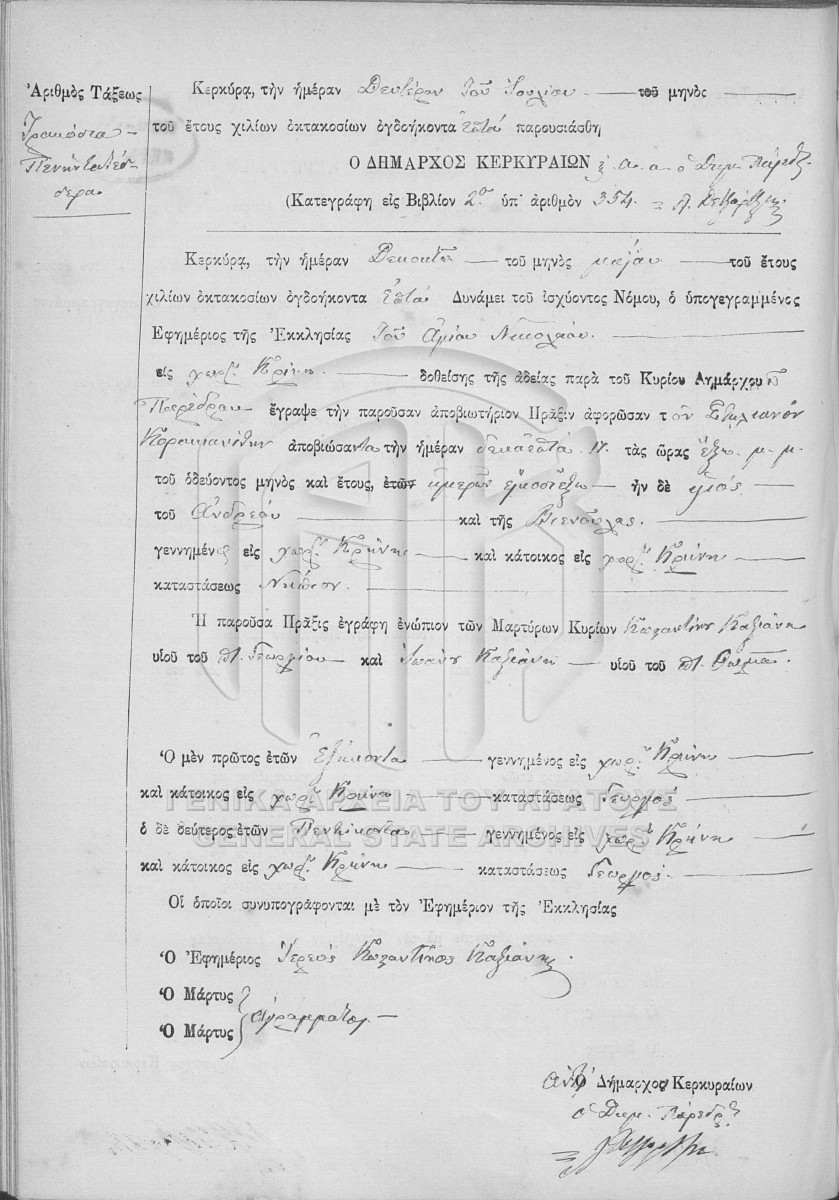 Ἀριθμὸς Τάξεως
Τριακόσια
Πενήντα τέσ-
σερα
Κερκύρᾳ, τὴν ἡμέραν Δευτέραν τοῦ Ἰουλίου τοῦ μηνὸς
τοῦ ἔτους χιλίων ὀκτακοσίων ὀγδοήκοντα ἑπτά παρουσιάσθη
Ὁ ΔΗΜΑΡΧΟΣ ΚΕΡΚΥΡΑΙΩΝ
(Κατεγράφη εἰς Βιβλίον 2ον ὑπ' ἀριθμὸν 354
Κερκύρᾳ, τὴν ἡμέραν Δεκοκτώ τοῦ μηνὸς μαΐου τοῦ ἔτους
χιλίων ὀκτακοσίων ὀγδοήκοντα ἑπτά Δυνάμει τοῦ ἰσχύοντος Νόμου, ὁ ὑπογεγραμμένος
Ἐφημέριος τῆς Ἐκκλησίας τοῦ ἁγίου Νικολάου
εἰς χωρ. Κρίνη δοθείσης τῆς ἀδείας παρὰ τοῦ Κυρίου Δημάρχου
Παρέδρου ἔγραψε τὴν παροῦσαν ἀποβιωτήριον Πρᾶξιν ἀφορῶσαν τὸν Στυλιανόν
ἀποβιώσαντα τὴν ἡμέραν δεκαεπτά 17. τὰς ὥρας ἕξω μ. μ.
τοῦ ὁδεύοντος μηνὸς καὶ ἔτους, ἐτῶν ἡμερῶν εἰκοσιέξω ἦν δὲ υἱός
τοῦ Ἀνδρέου καὶ τῆς Βιενούλας
γεννημένος εἰς χωρ. Κρήνη καὶ κάτοικος εἰς χωρ. Κρίνη
καταστάσεως Νήπιον
Ἡ παροῦσα Πρᾶξις ἐγράφη ἐνώπιον τῶν Μαρτύρων Κυρίων Κωσταντίνου Καξιάνη
υἱοῦ τοῦ π. Γεωργίου καὶ Ἰωάννου Καξιάνη υἱοῦ τοῦ π. Θωμᾶ
Ὁ μὲν πρῶτος ἐτῶν Ἑξήκοντα γεννημένος εἰς χωρ. Κρίνη
καὶ κάτοικος εἰς χωρ. Κρίνη καταστάσεως Γεωργός
ὁ δὲ δεύτερος ἐτῶν Πεντήκοντα γεννημένος εἰς χωρ. Κρήνη
καὶ κάτοικος εἰς χωρ. Κρήνη καταστάσεως Γεωργός
Οἱ ὁποῖοι συνυπογράφονται μὲ τὸν Ἐφημέριον τῆς Ἐκκλησίας
Ὁ Ἐφημέριος Ἱερεύς Κωσταντῖνος Καξιάνης
Ὁ Μάρτυς
Ὁ Μάρτυς
ἀγράμματοι
Ὁ Δήμαρχος Κερκυραίων
ὁ Δημ. Πάρεδρ.
ΓΕΝΙΚΑ ΑΡΧΕΙΑ ΤΟΥ ΚΡΑΤΟΥΣ
GENERAL STATE ARCHIVES